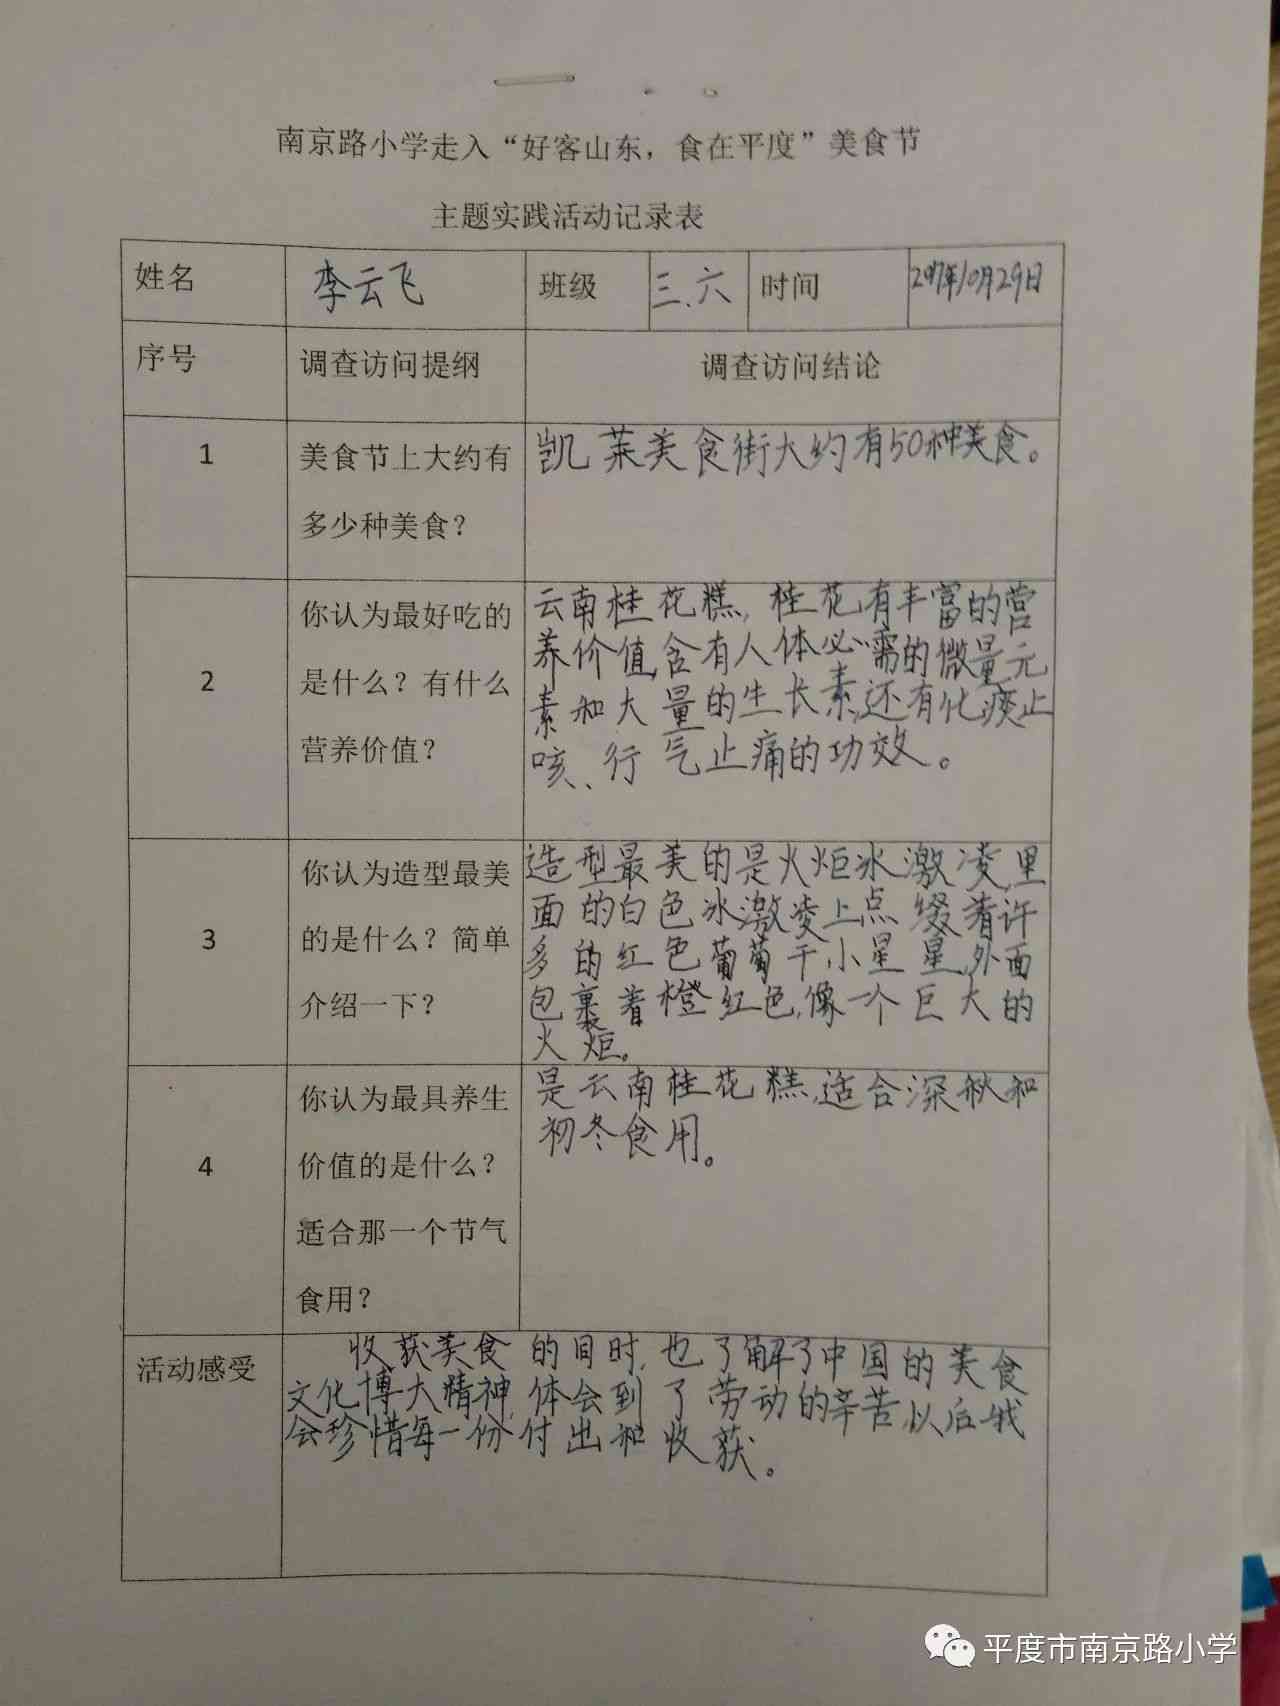 南京路小学走入“好客山东，食在平度”美食节
主题实践活动记录表
姓名 李云飞 班级 三、六 时间 2017年10月29日
序号 调查访问提纲 调查访问结论
1
美食节上大约有
多少种美食？
凯莱美食街大约有50种美食。
2
你认为最好吃的
是什么？有什么
营养价值？
云南桂花糕，桂花有丰富的营
养价值，含有人体必需的微量元
素和大量的生长素，还有化痰止
咳、行气止痛的功效。
3
你认为造型最美
的是什么？简单
介绍一下？
造型最美的是火炬冰激凌，里
面的白色冰激凌上点缀着许
多的红色葡萄干，小星星，外面
包裹着橙红色，像一个巨大的
火炬。
4
你认为最具养生
价值的是什么？
适合那一个节气
食用？
是云南桂花糕，适合深秋和
初冬食用。
活动感受
收获美食的同时，也了解了中国的美食
文化博大精神，体会到了劳动的辛苦以后我
会珍惜每一份付出和收获。
平度市南京路小学